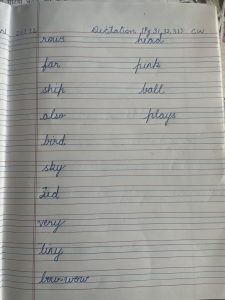 Dictation (Pg 31,32,33) CW
rows head
far pink
ship ball
also plays
bird
sky
Ted
very
tiny
bow-wow